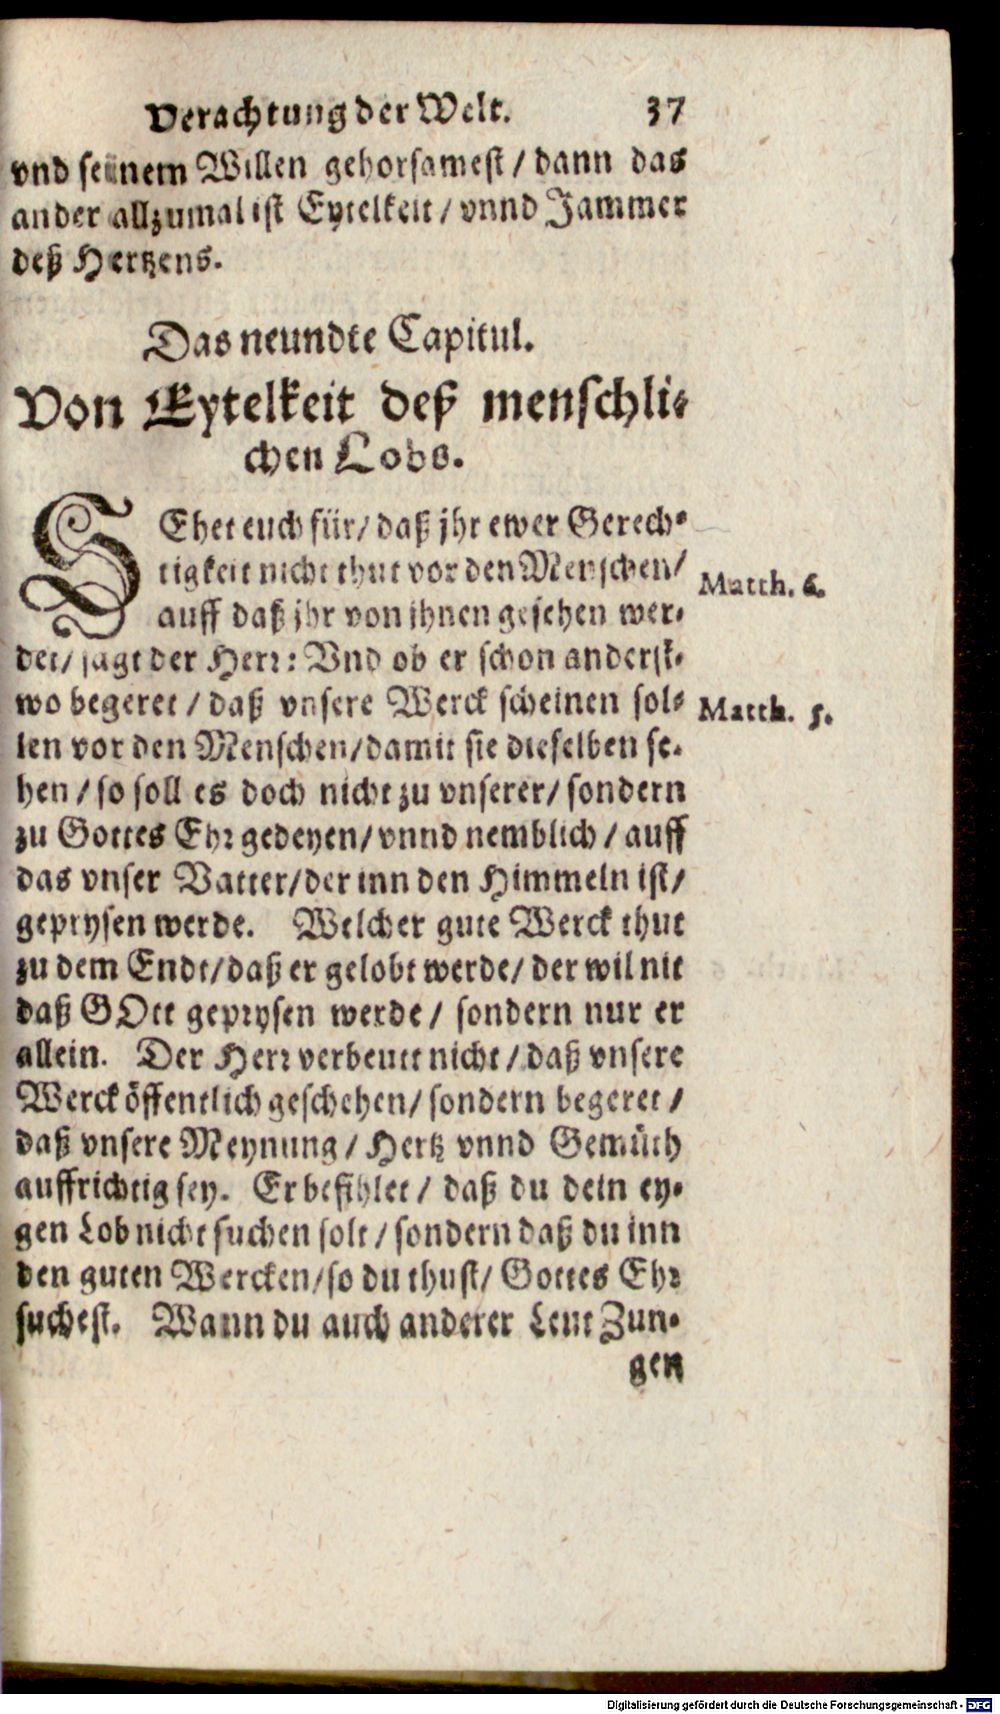 Verachtung der Welt. 37
vnd seinem Willen gehorsamest / dann das
ander allzumal ist Eytelkeit / vnnd Jammer
deß Hertzens.
Das neundte Capitul.
Von Eytelkeit deß menschli-
chen Lobs.
SEhet euch für / daß jhr ewer Gerech-
tigkeit nicht thut vor den Menschen /
auff daß jhr von ihnen gesehen wer-
det / sagt der Herr: Vnd ob er schon anderst-
wo begeret / daß vnsere Werck scheinen sol-
len vor den Menschen / damit sie dieselben se-
hen / so soll es doch nicht zu vnserer / sondern
zu Gottes Ehr gedeyen / vnnd nemblich / auff
das vnser Vatter / der inn den Himmeln ist /
geprysen werde. Welcher gute Werck thut
zu dem Endt / daß er gelobt werde / der wil nit
daß GOtt geprysen werde / sondern nur er
allein. Der Herr verbeutt nicht / daß vnsere
Werck öffentlich geschehen / sondern begeret /
daß vnsere Meynung / Hertz vnnd Gemüth
auffrichtig sey. Er befihlet / daß du dein ey-
gen Lob nicht suchen solt / sondern daß du inn
den guten Wercken / so du thust / Gottes Ehr
suchest. Wann du auch anderer Leut Zun-
gen
Matth. 6.
Matth. 5.
Digitalisierung gefördert durch die Deutsche Forschungsgemeinschaft - DFG